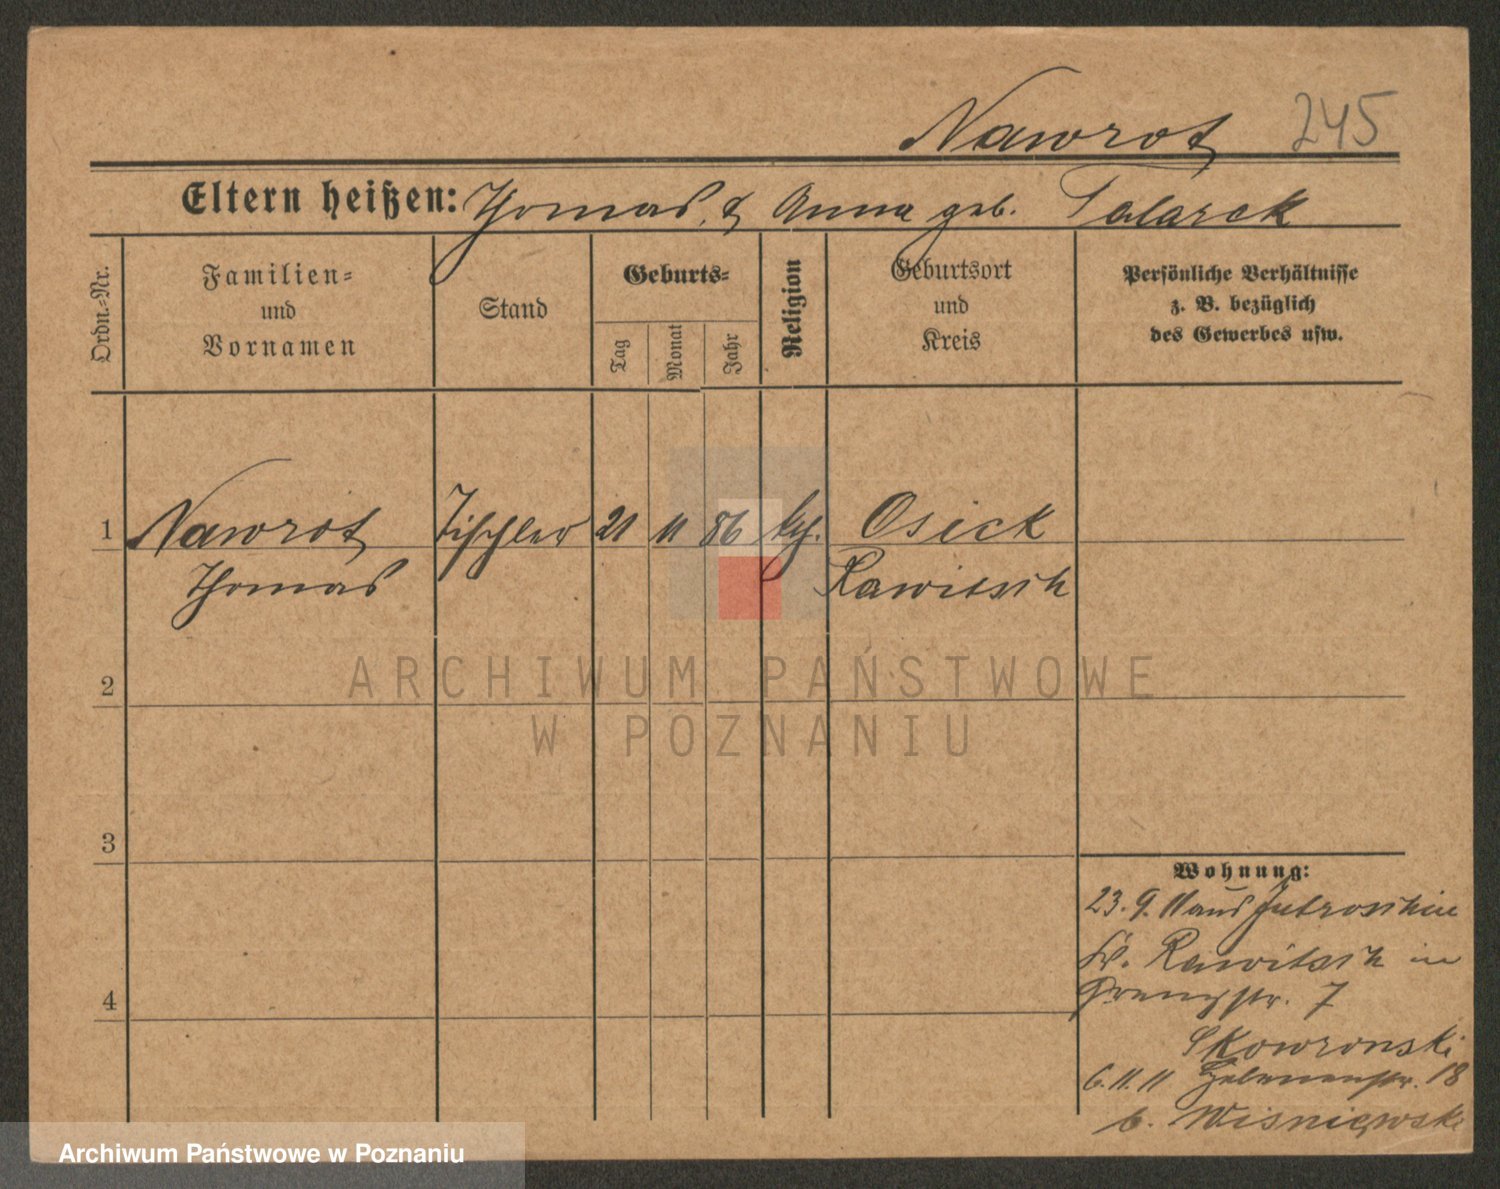 Nawrot 245
Eltern heißen: Thomas, & Anna geb. Talarek
Ordn.-Nr.
Familien-
und
Vornamen
Stand
Geburts-
Tag
Monat
Jahr
Religion
Geburtsort
und
Kreis
Persönliche Verhältnisse
z. B. bezüglich
des Gewerbes usw.
1 Nawrot Tischler 21 11 86 kth. Osick
Thomas Rawitsch
2
3
4
Wohnung:
23. 9. 11 aus Jutroschin
Kr. Rawitsch in
Grenzstr. 7
Skowronski
6. 11. 11 Helenenstr. 18
b. Wisniewski
ARCHIWUM PAŃSTWOWE
W POZNANIU
Archiwum Państwowe w Poznaniu